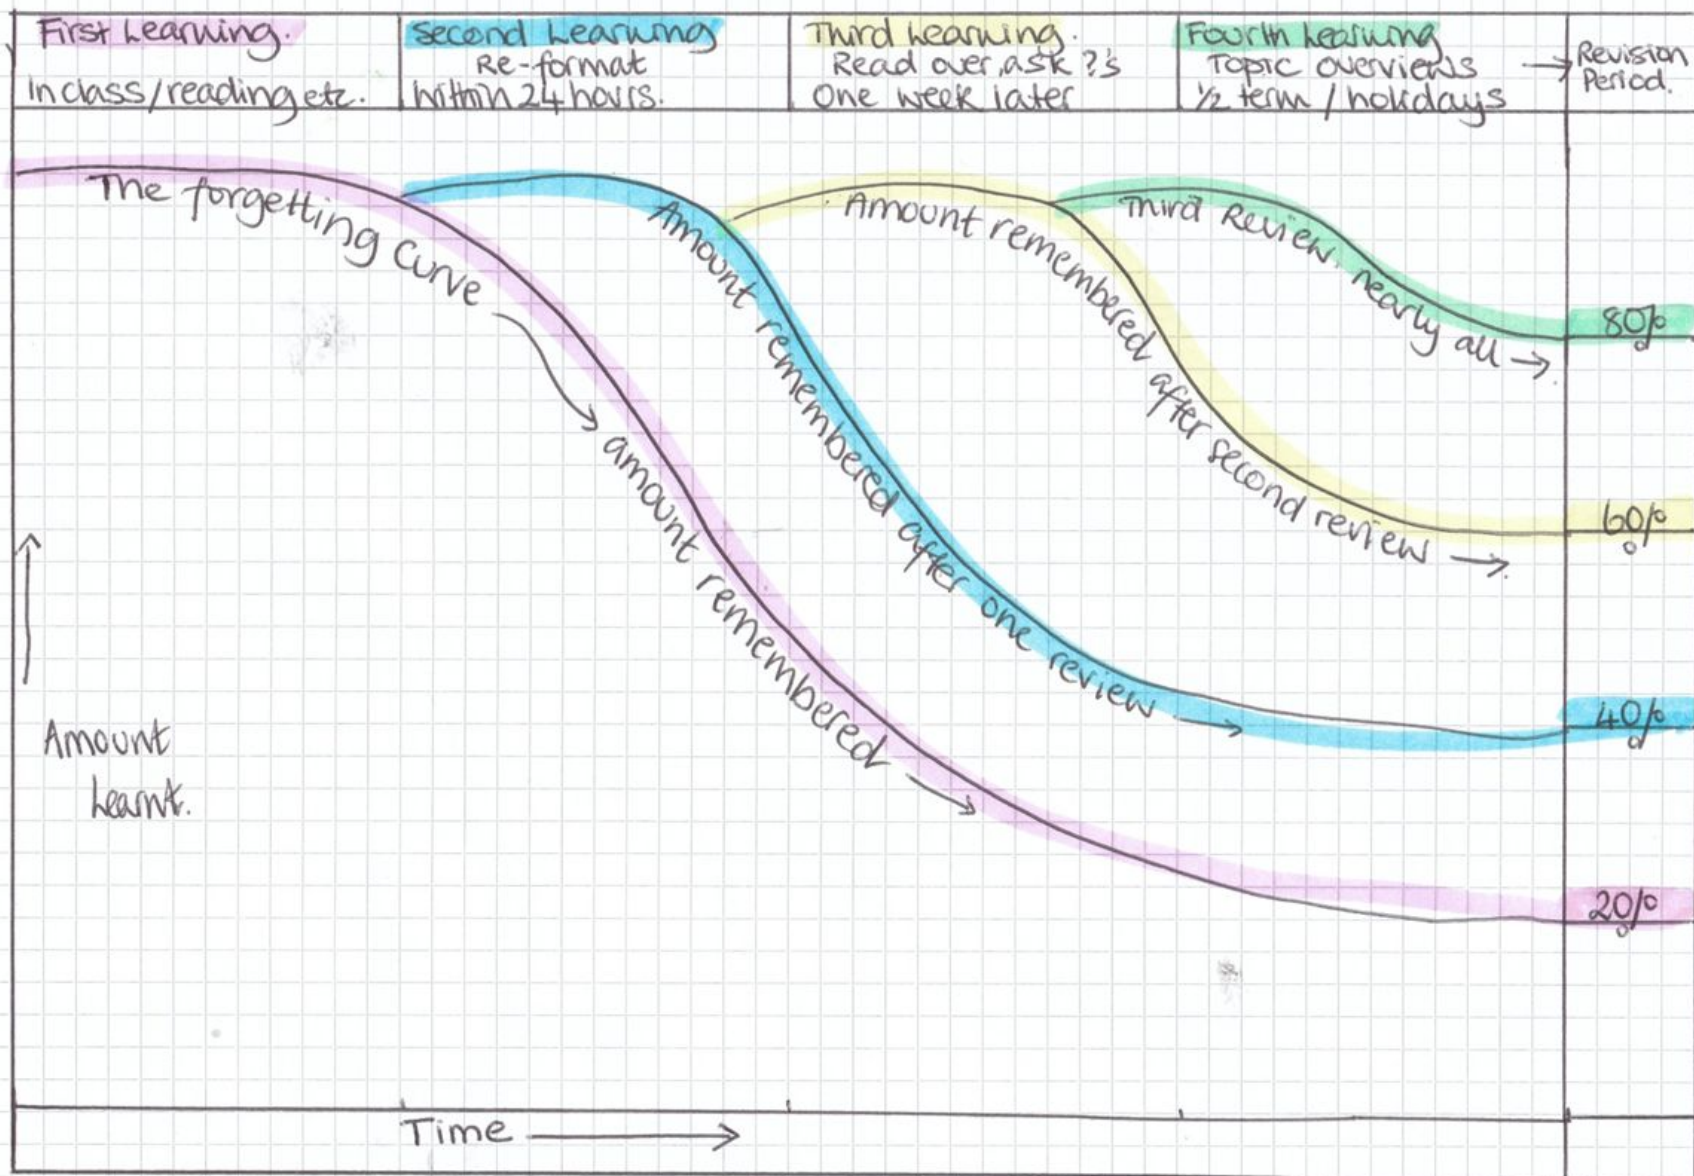 First Learning.
In class/reading etc.
Second Learning
Re-format
Within 24 hours.
Third Learning.
Read over, ask ?'s
One week later
Fourth Learning
Topic overviews
½ term / holidays
→ Revision
Period.
The forgetting curve
→ amount remembered →
Amount remembered after one review →
Amount remembered after second review →
Third Review. nearly all →
80%
60%
40%
20%
Amount
Learnt.
Time →